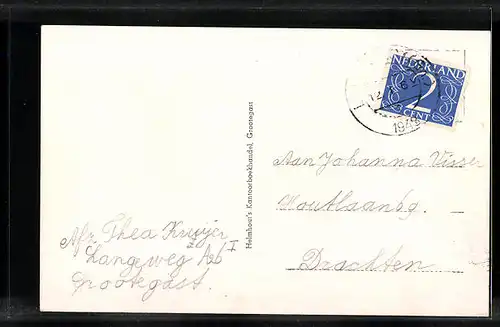 NEDERLAND
2
CENT
1949
Helmhout's Kantoorboekhandel, Grootegast
Aan Johanna Visser
Houtlaan 6g.
Drachten
Afz. Thea Kruijer
Langeweg
Grootegast.